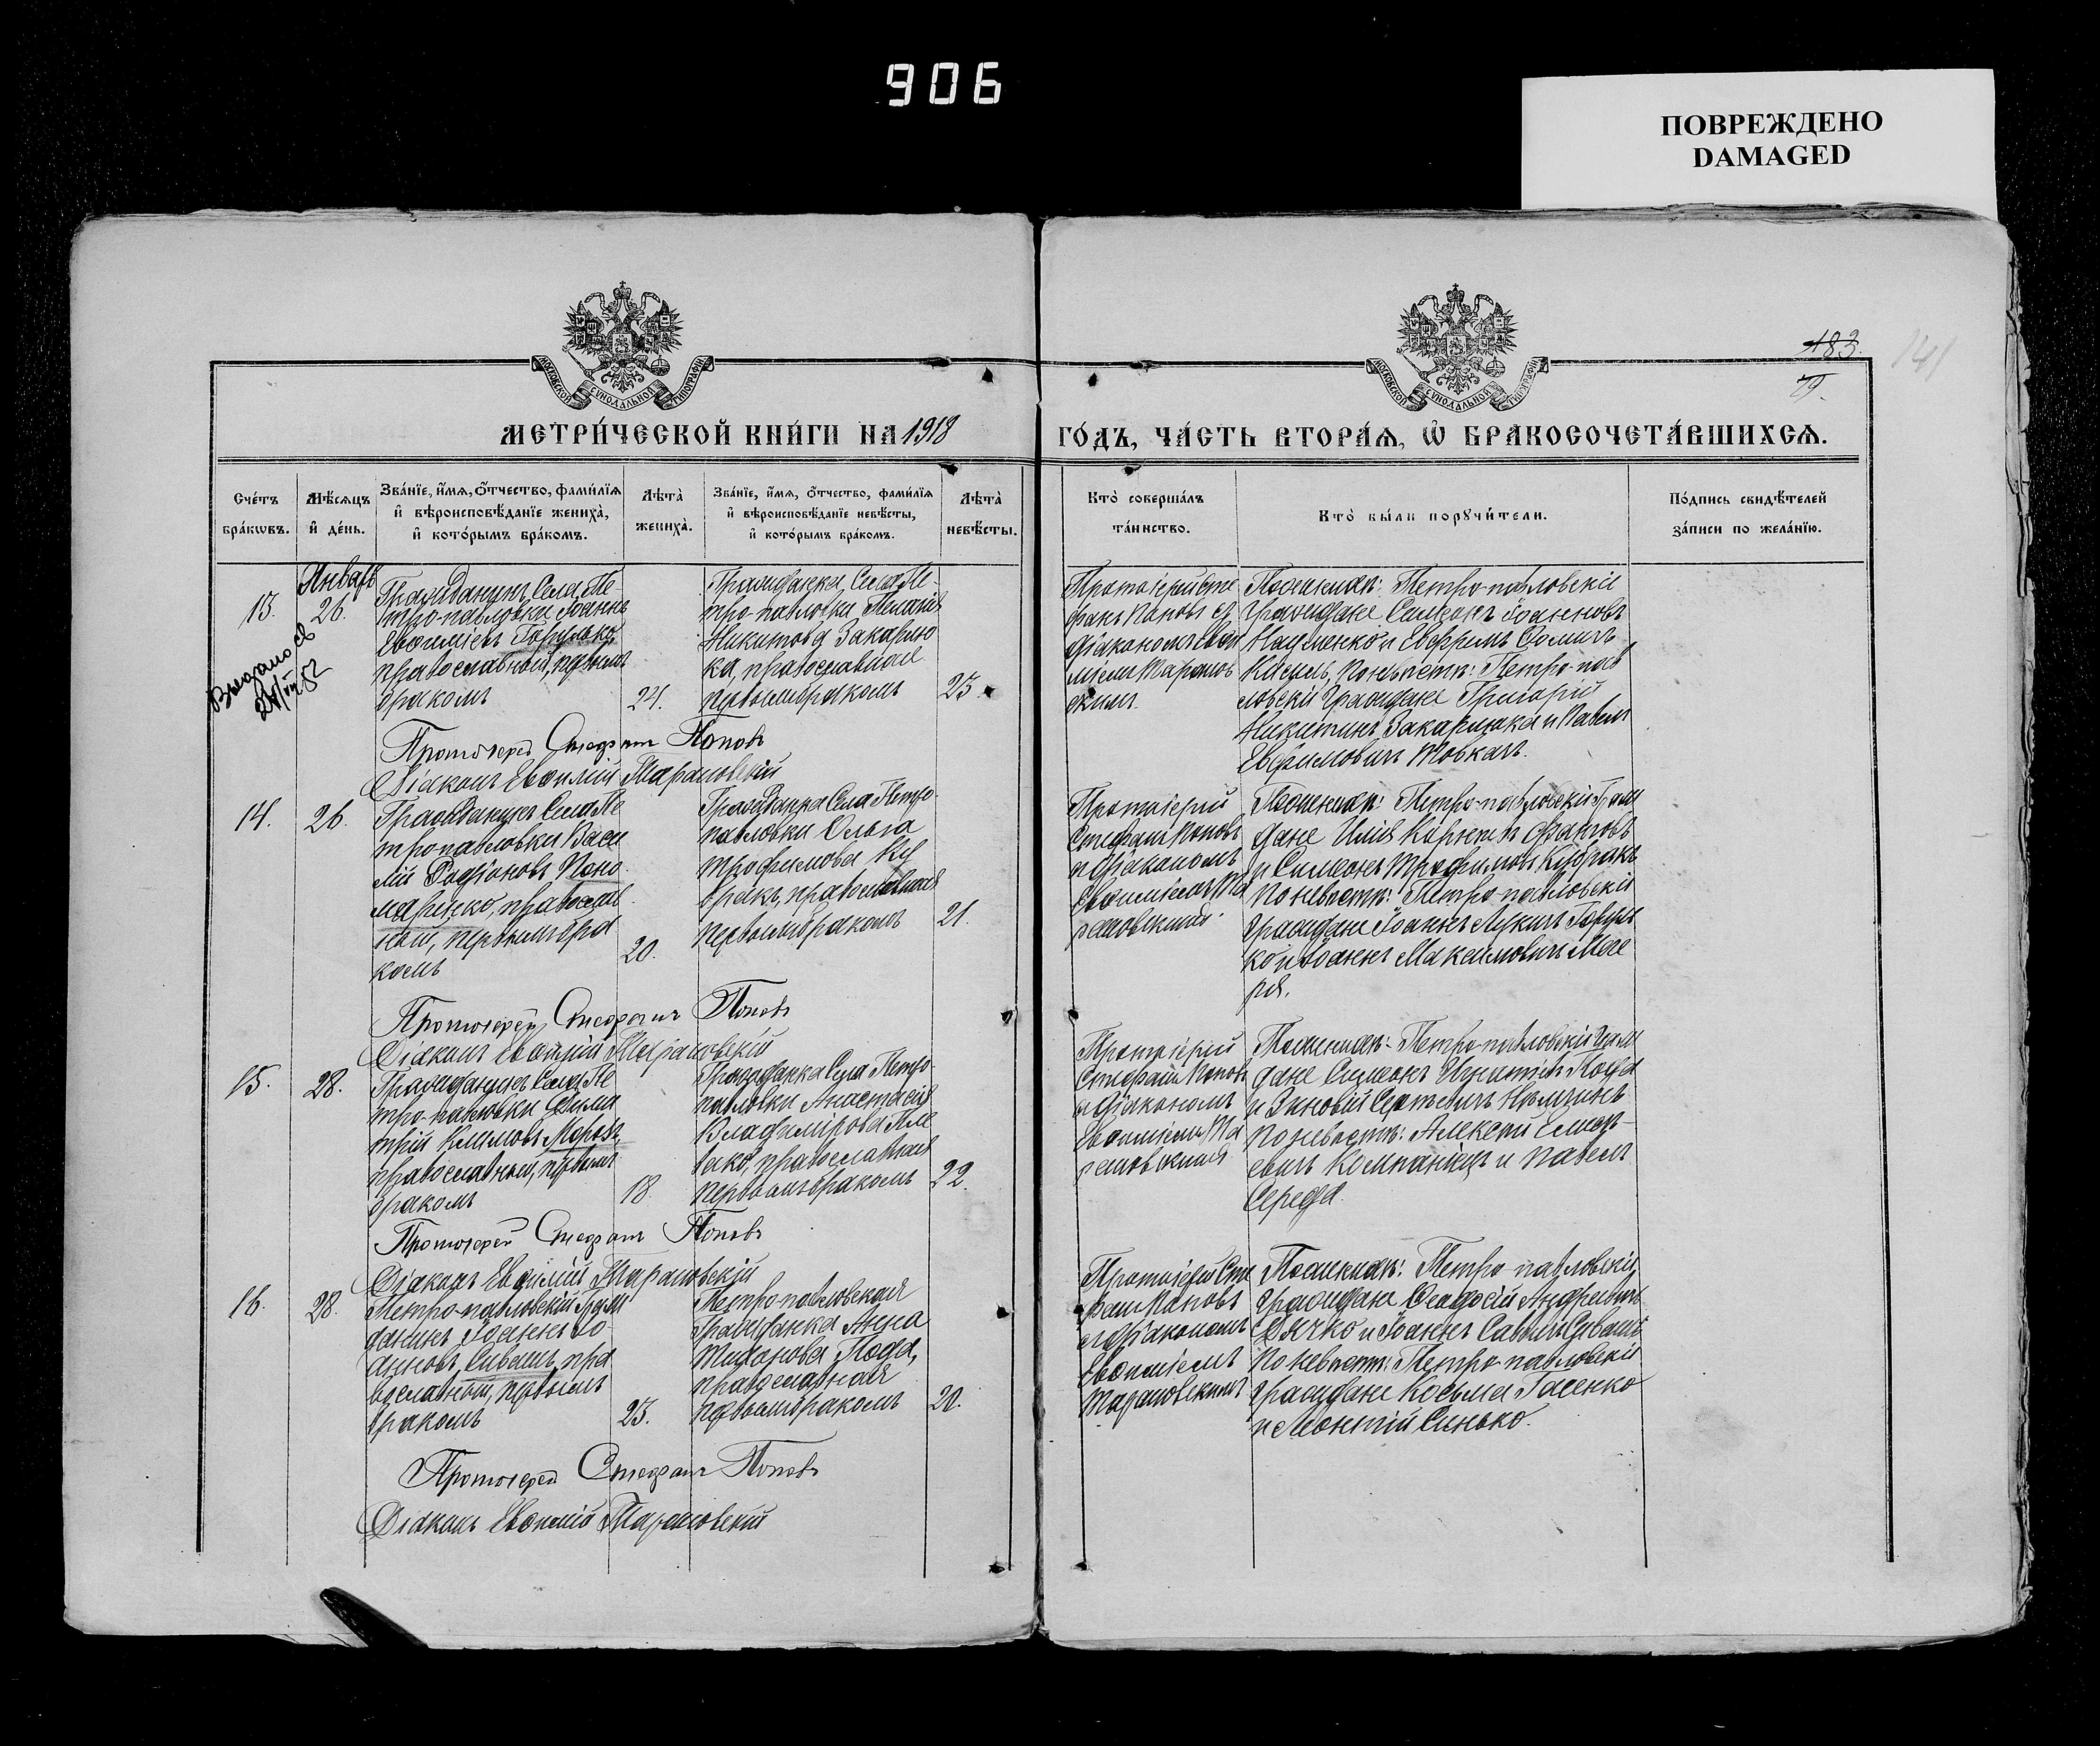 906
ПОВРЕЖДЕНО
DAMAGED
МОСКОВСКОЙ СѴНОДАЛЬНОЙ ТИПОГРАФИИ
МОСКОВСКОЙ СѴНОДАЛЬНОЙ ТИПОГРАФИИ
183.
141
МЕТРИ́ЧЕСКОЙ КНИ́ГИ НА 1918
ГО́ДЪ, ЧА́СТЬ ВТОРА́Ѧ, Ѡ҆ БРАКОСОЧЕТА́ВШИХСѦ.
Сче́тъ бра́кѡвъ.
Мѣ́сяцъ и҆ де́нь.
Зва́нїе, и҆́мѧ, ѻ҆́тчество, фами́лїѧ
и҆ вѣроисповѣ́данїе жениха̀,
и҆ кото́рымъ бра́комъ.
Лѣта̀ жениха̀.
Зва́нїе, и҆́мѧ, ѻ҆́тчество, фами́лїѧ
и҆ вѣроисповѣ́данїе невѣ́сты,
и҆ кото́рымъ бра́комъ.
Лѣта̀ невѣ́сты.
Кто̀ соверша́лъ та́инство.
Кто̀ бы́ли порꙋчи́тели.
По́дпись свидѣ́телей
за́писи по жела́нїю.
13.
Январь
26.
Гражданинъ Села Пе-
тро-павловки Іоаннъ
Евѳиміевъ
православный, первымъ
бракомъ
24.
Гражданка Села Пе-
тро-павловки Пелагія
Никитова Закарлю
ка, православная
первымъ бракомъ
23.
Протоіерей Сте
фанъ Поповъ съ
діакономъ Евѳи
міемъ Таранов
скимъ.
По женихѣ: Петро-павловскіе
граждане Симеонъ Іоанновъ
и Ефремъ
По невѣстѣ: Петро-пав
ловскіе граждане Григорій
Никитинъ Закарлюка и Павелъ
Ефимовичъ Товкачъ.
Протоіерей Стефанъ Поповъ
Діаконъ Евѳимій Тарановскій
14.
26.
Гражданинъ Села Пе
тропавловки Васи
лій Родіоновъ Поно
маренко, православ
ный, первымъ бра
комъ
20.
Гражданка Села Петро-
павловки Ольга
Трофимова Ку
бракъ, православная
первымъ бракомъ
21.
Протоіерей
Стефанъ Поповъ
съ діакономъ
Евѳиміемъ Та
рановскимъ.
По женихѣ: Петро-павловскіе граж
дане Илія
и Симеонъ Трофимовъ Кубракъ
По невѣстѣ: Петро-павловскіе
граждане Іоаннъ Лукичъ
ко и Іоаннъ Максимовичъ
Протоіерей Стефанъ Поповъ
Діаконъ Евѳимій Тарановскій
15.
28.
Гражданинъ Села Пе
тро-павловки Дими
трій Климовъ Морозъ,
православный, первымъ
бракомъ
18.
Гражданка Села Петро-
павловки Анастасія
Владимірова
православная
первымъ бракомъ
22.
Протоіерей
Стефанъ Поповъ
съ діакономъ
Евѳиміемъ Та
рановскимъ
По женихѣ: Петро-павловскіе граж
дане Симеонъ Игнатіевъ
и Зиновій Сергѣевичъ
По невѣстѣ: Алексѣй
евичъ Компаніецъ и Павелъ
Середа.
Протоіерей Стефанъ Поповъ
Діаконъ Евѳимій Тарановскій
16.
28.
Петро-павловскій граж
данинъ Іоаннъ Іо-
анновъ Сивашъ, пра
вославный, первымъ
бракомъ
23.
Петро-павловская
гражданка Анна
Тихонова
православная
первымъ бракомъ
20.
Протоіерей Сте
фанъ Поповъ
съ діакономъ
Евѳиміемъ
Тарановскимъ
По женихѣ: Петро-павловскіе
граждане Ѳеодосій Андреевичъ
Дячко и Іоаннъ Савичъ Сивашъ
По невѣстѣ: Петро-павловскіе
граждане Косьма Гасенко
и Леонтій Синько.
Протоіерей Стефанъ Поповъ
Діаконъ Евѳимій Тарановскій